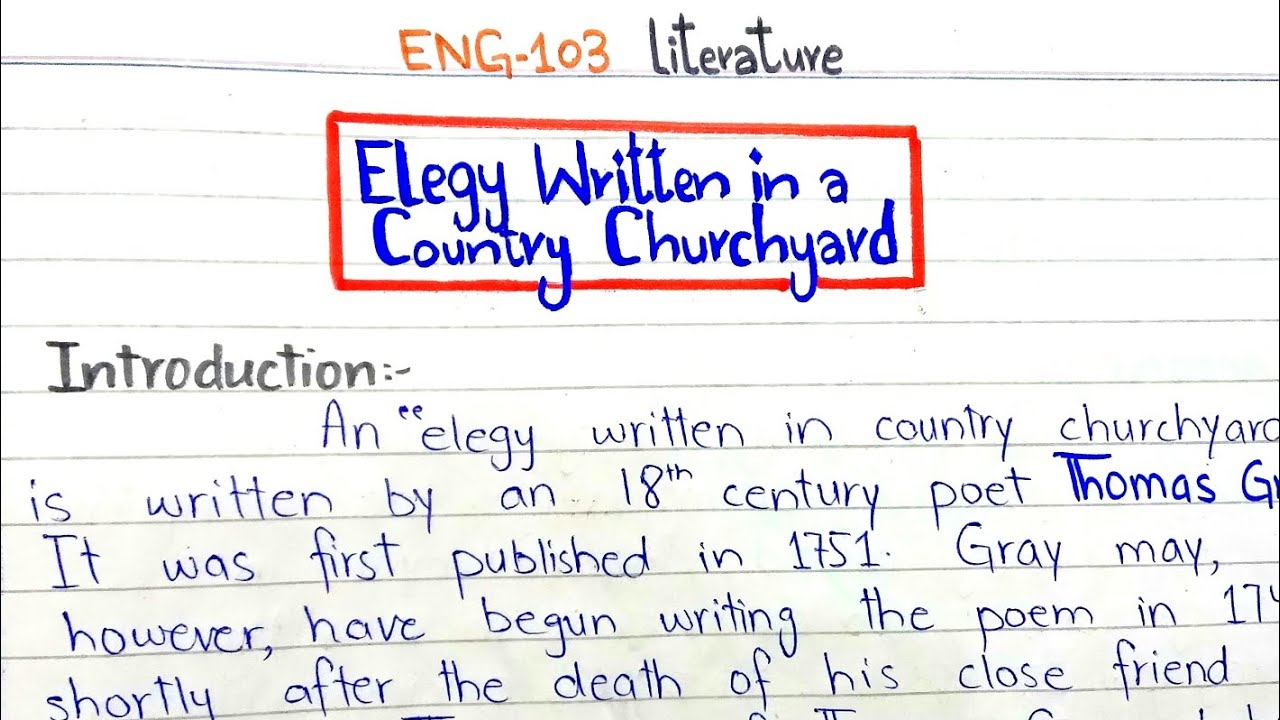 ENG-103 Literature
Elegy Written in a
Country Churchyard
Introduction:-
An "elegy written in country churchyard
is written by an 18th century poet Thomas
It was first published in 1751. Gray may,
however, have begun writing the poem in
shortly after the death of his close friend